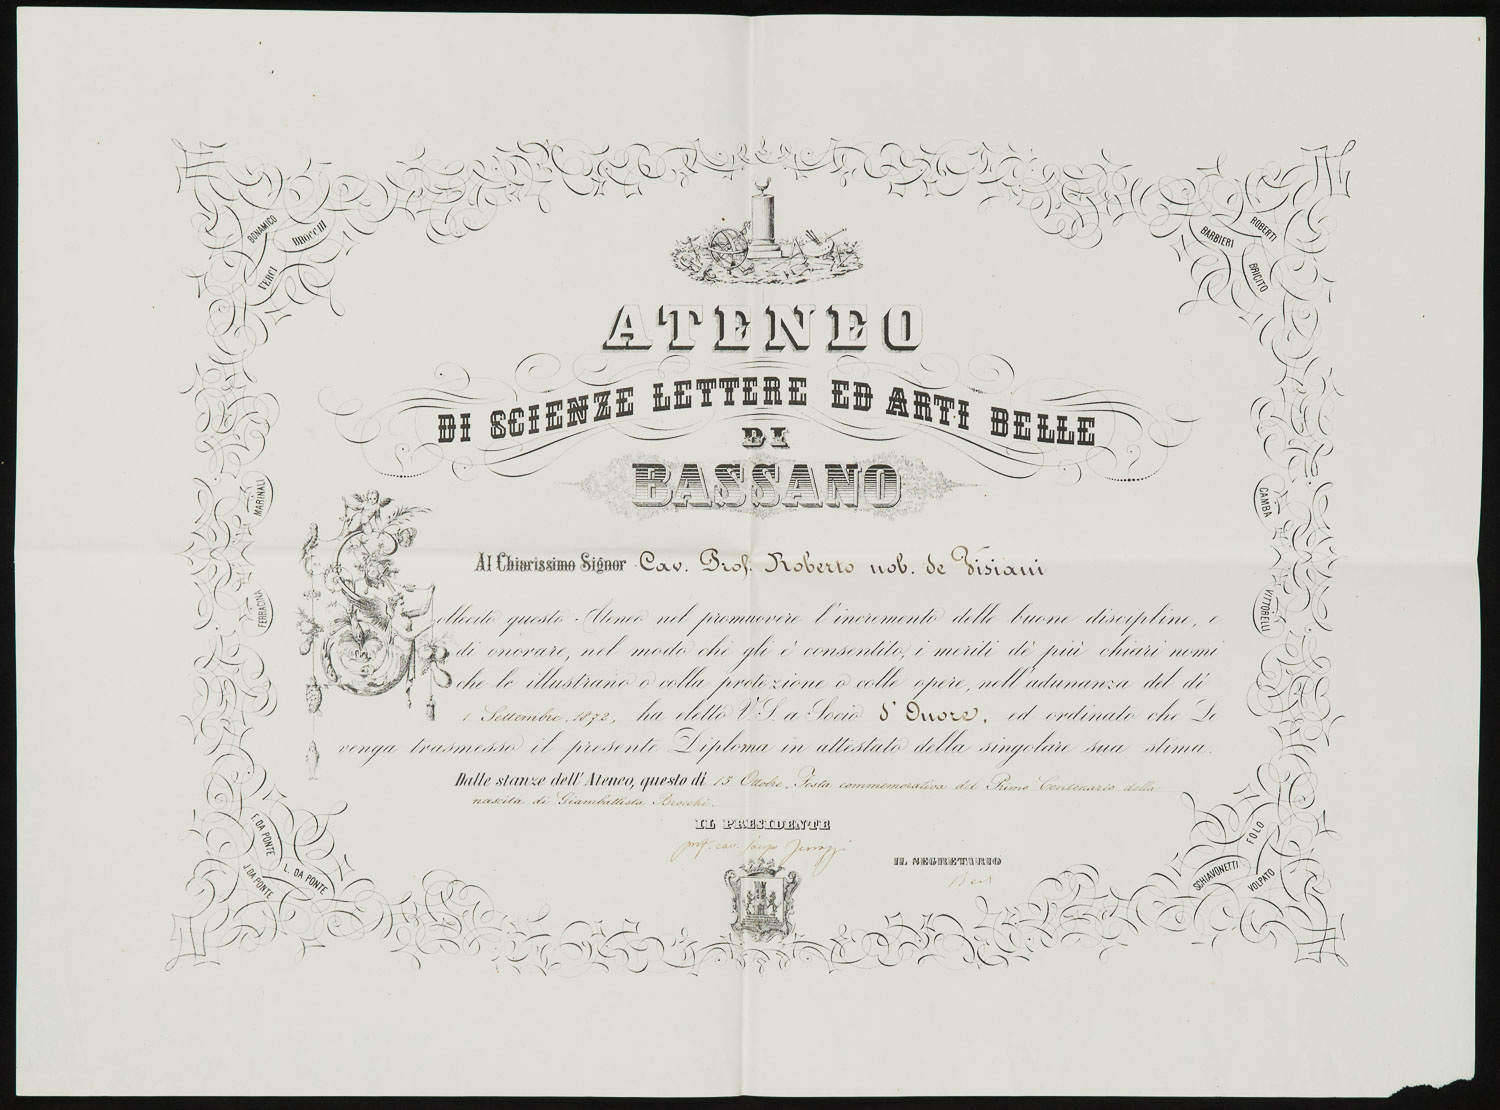 BONAMICO
BROCCHI
VERCI
ROBERTI
BARBIERI
BRICITO
ATENEO
DI SCIENZE LETTERE ED ARTI BELLE
DI
BASSANO
MARINALI
GAMBA
Al Chiarissimo Signor Cav. Prof. Roberto nob. de Visiani
FERRACINA
VITTORELLI
Sollecito questo Ateneo nel promuovere l'incremento delle buone discipline, e
di onorare, nel modo che gli è consentito, i meriti de' più chiari nomi
che lo illustrano o colla protezione o colle opere, nell'adunanza del dì
1 Settembre, 1872, ha eletto V.S. a Socio d'Onore, ed ordinato che Le
venga trasmesso il presente Diploma in attestato della singolare sua stima.
Dalle stanze dell'Ateneo, questo dì 15 Ottobre, Festa commemorativa del Primo Centenario della
nascita di Giambattista Brocchi.
IL PRESIDENTE
prof. cav.
IL SEGRETARIO
F. DA PONTE
J. DA PONTE
L. DA PONTE
FOLO
SCHIAVONETTI
VOLPATO